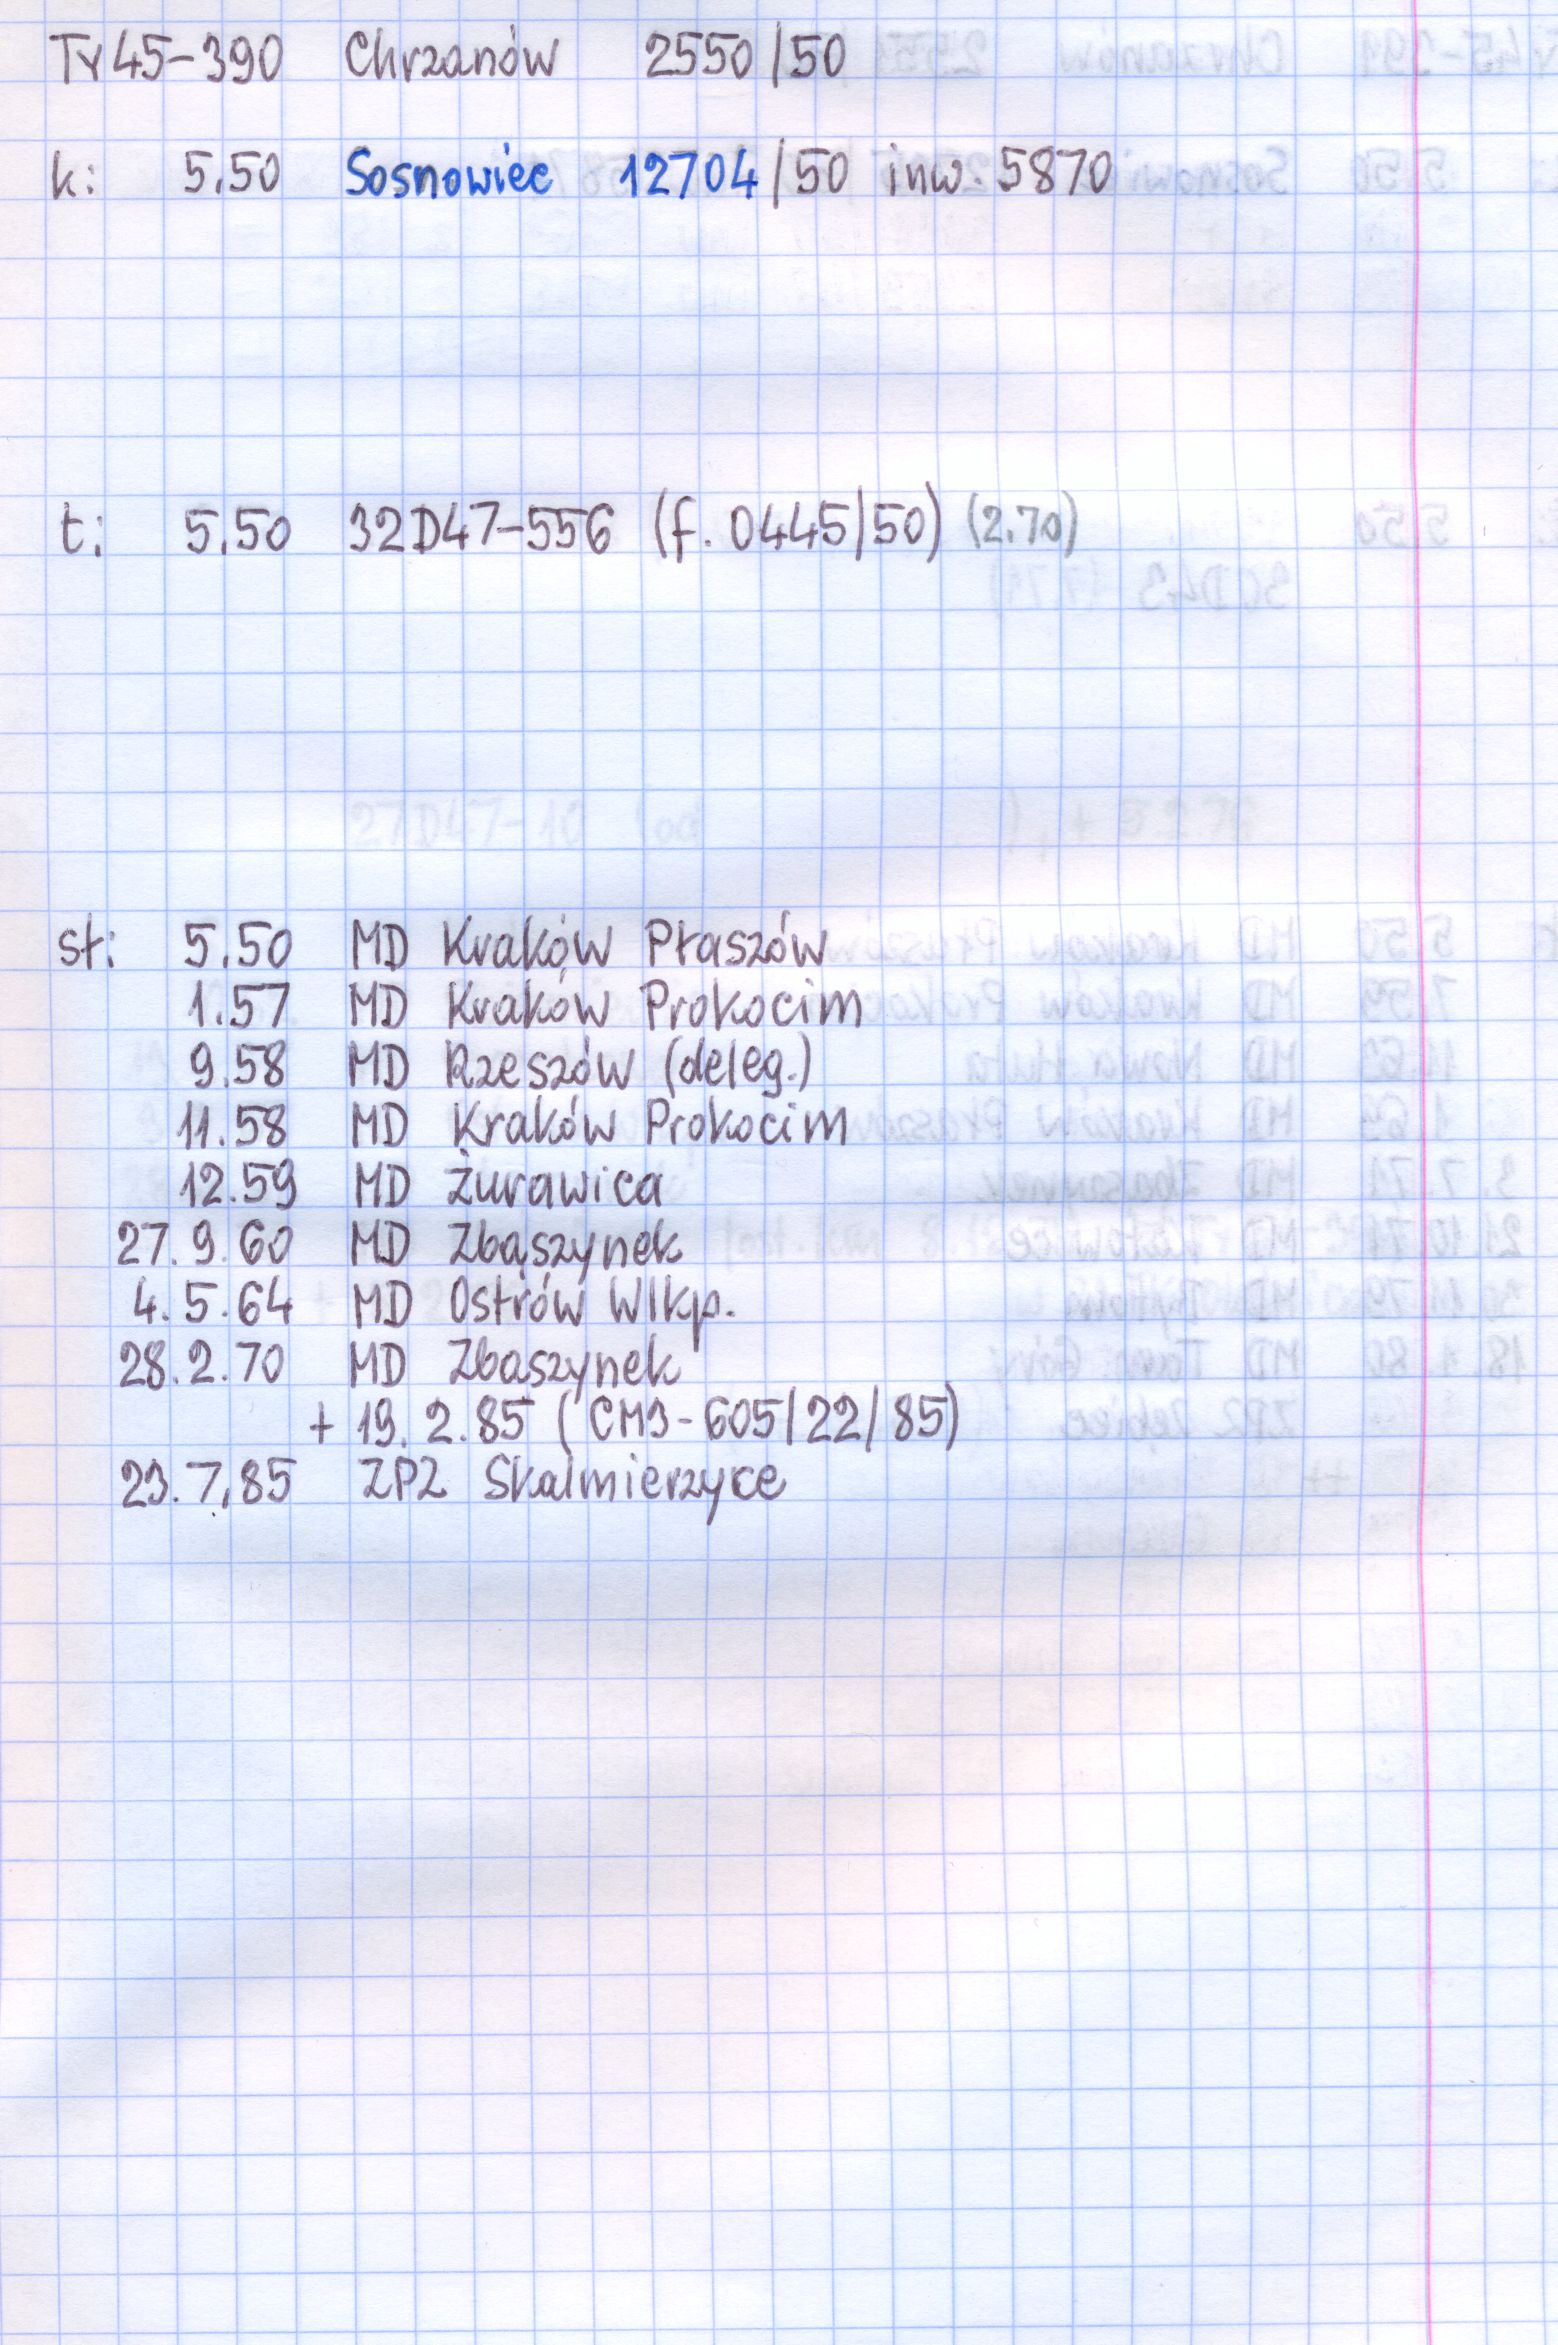 Ty45-390 Chrzanów 2550/50
k: 5.50 Sosnowiec 12704/50 inw. 5870
t: 5.50 32D47-556 (f. 0445/50) (2.70)
st: 5.50 MD Kraków Płaszów
1.57 MD Kraków Prokocim
9.58 MD Rzeszów (deleg.)
11.58 MD Kraków Prokocim
12.59 MD Żurawica
27.9.60 MD Zbąszynek
4.5.64 MD Ostrów Wlkp.
28.2.70 MD Zbąszynek
+ 19.2.85 (CM3-605/22/85)
23.7.85 ZPZ Skalmierzyce